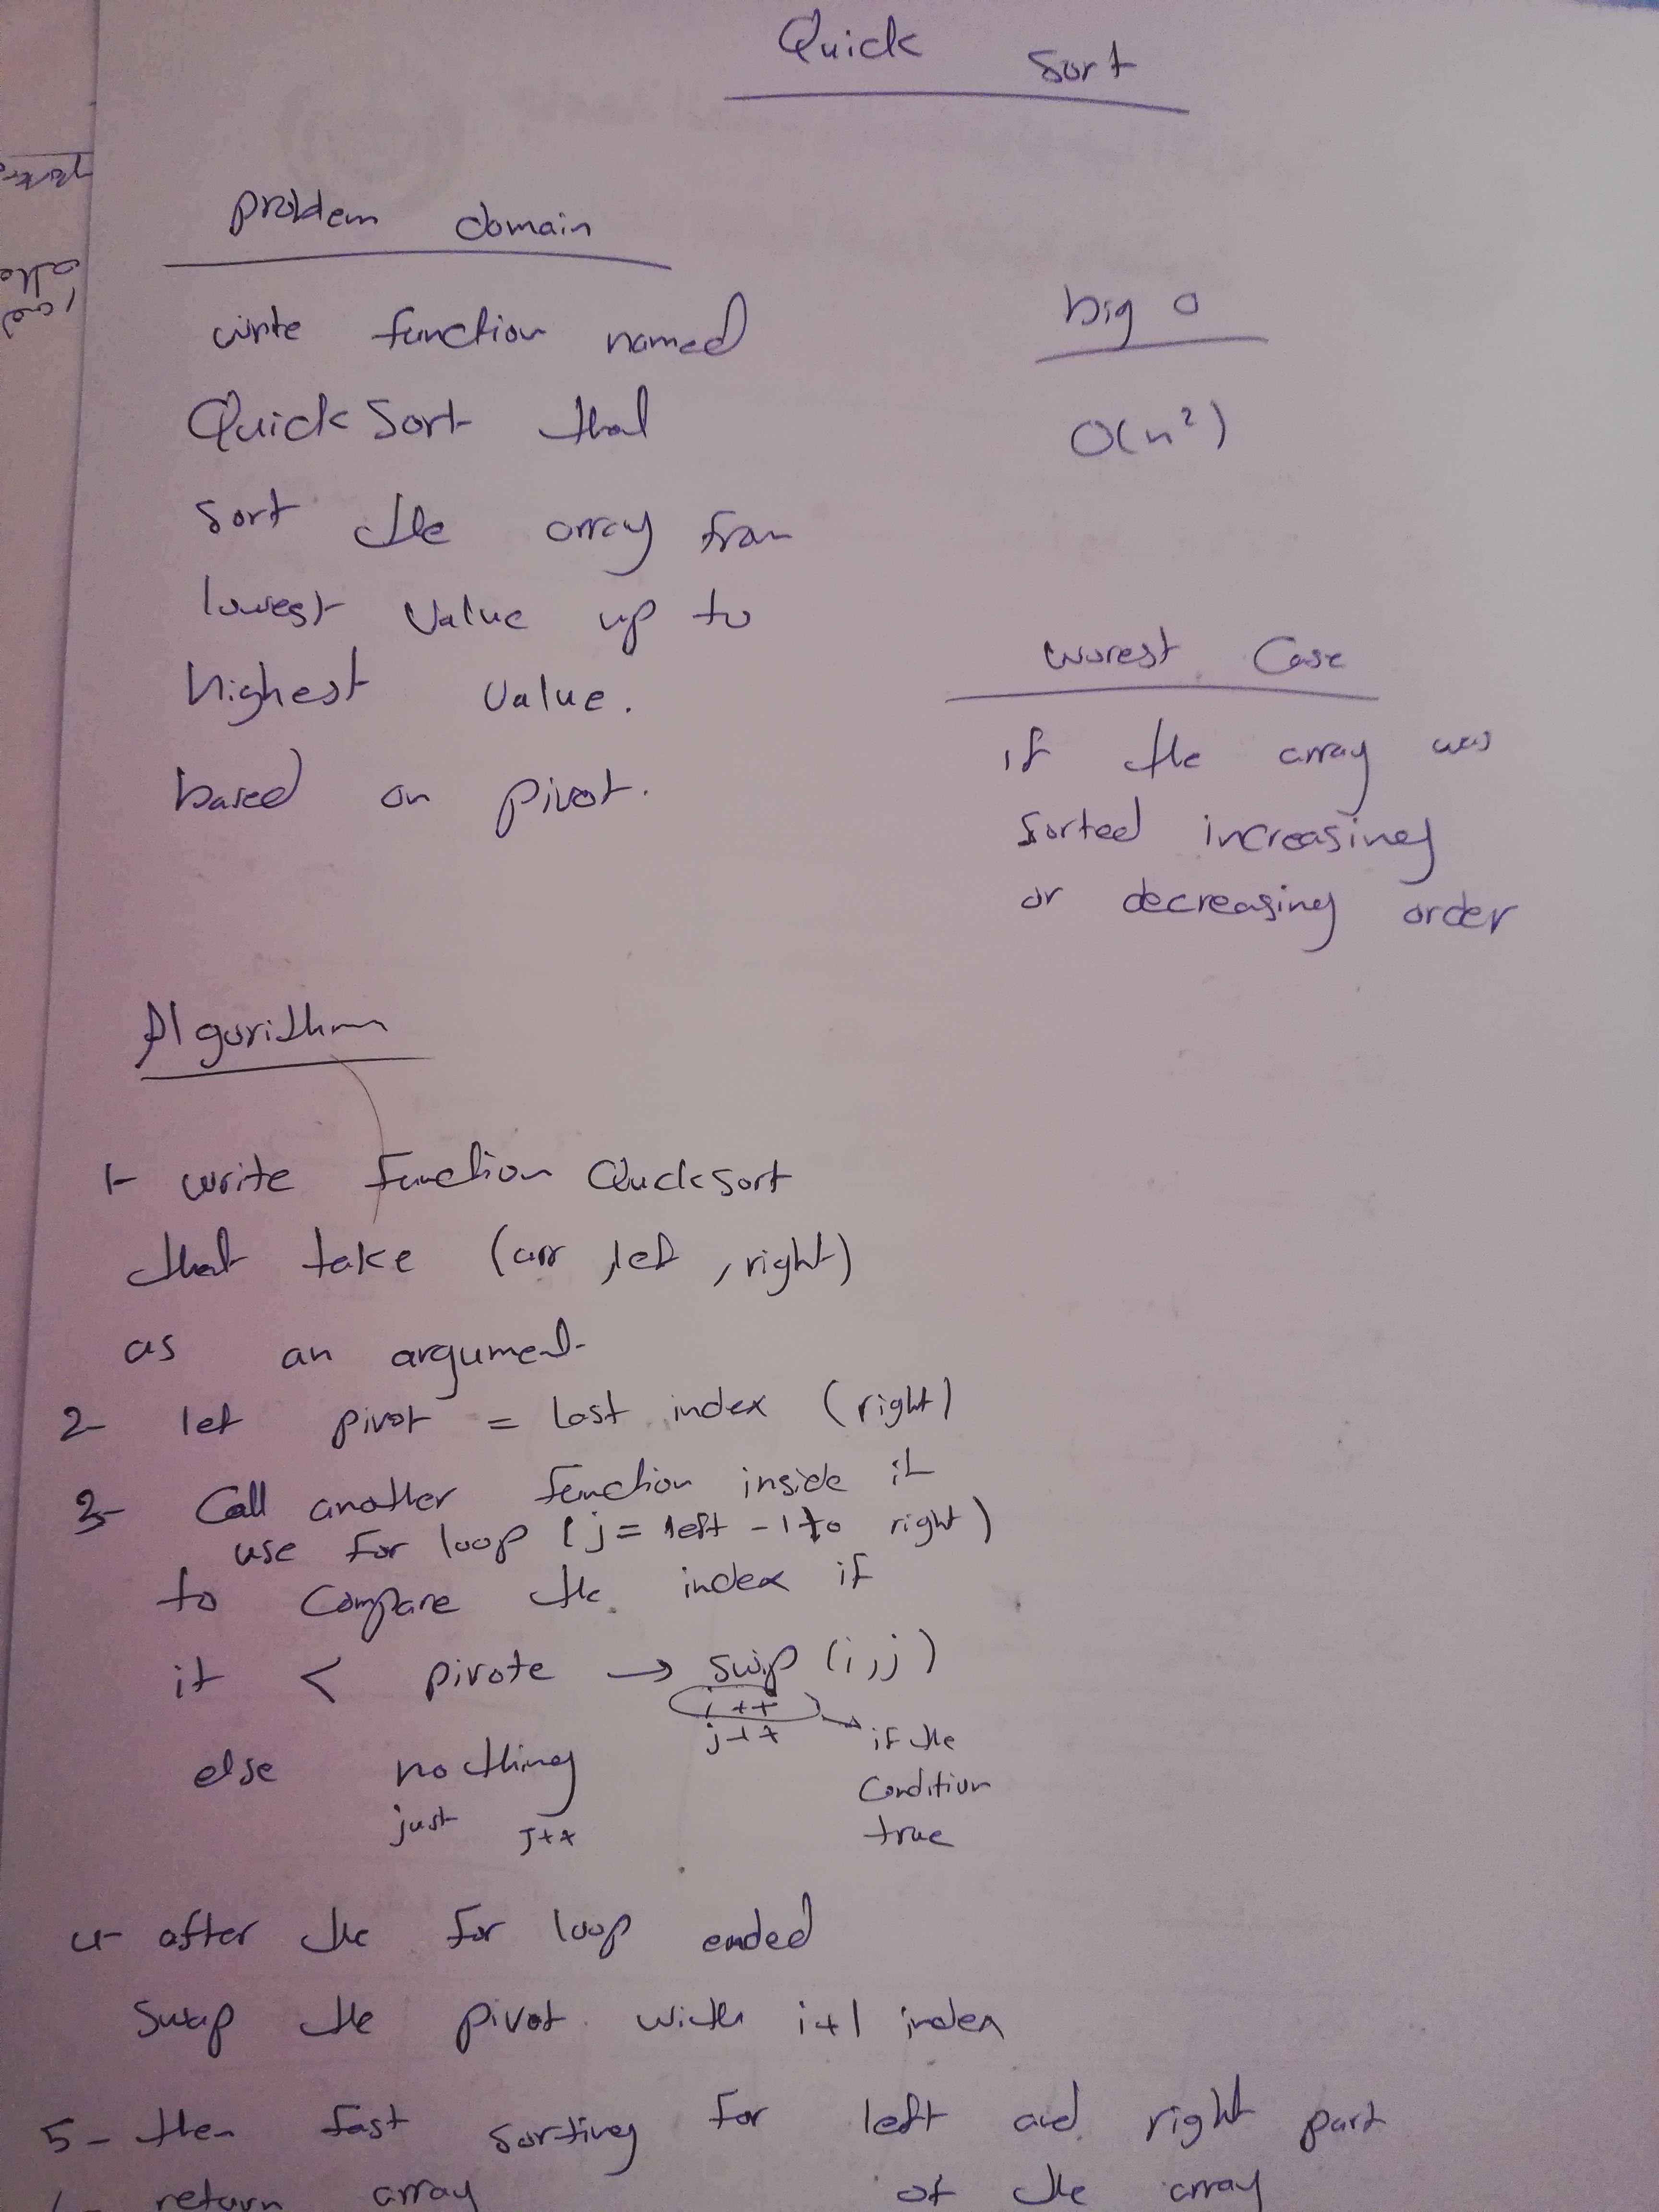 Quick Sort
problem domain
write function named
Quick Sort that
sort the array from
lowest value up to
highest value.
based on pivot.
big O
O(n²)
worest case
if the array was
sorted increasing
or decreasing order
Algorithm
1- write function QuckSort
that take (arr, left, right)
as an argument
2- let pivot = last index (right)
3- Call another function inside it
use for loop (j = left - 1 to right)
to compare the index if
it < pivote → swap (i, j)
i++
j++
if the
condition
true
else nothing
just j++
4- after the for loop ended
swap the pivot with i+1 index
5- then fast sorting for left and right part
of the array
return array